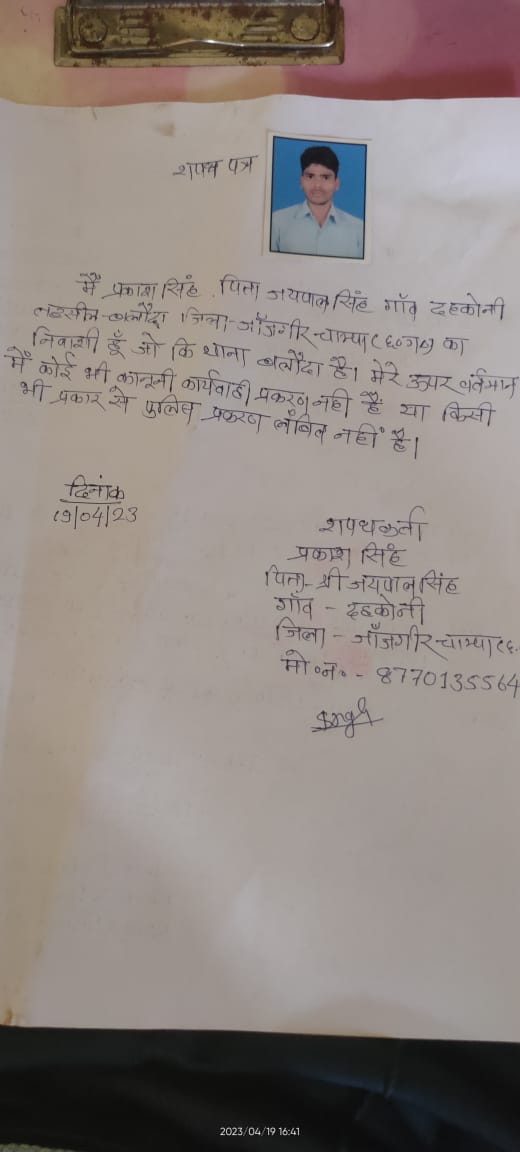 शपथ पत्र
मैं प्रकाश सिंह. पिता जयपाल सिंह गाँव दहकोनी
तहसील-बलौदा जिला-जाँजगीर-चाम्पा (छ०ग०) का
निवाशी हूँ जो कि थाना बलौदा है। मेरे ऊपर वर्तमान
में कोई भी कानूनी कार्यवाही प्रकरण नही है या किसी
भी प्रकार से पुलिस प्रकरण लंबित नहीं है।
दिनांक
19/04/23
शपथकर्ता
प्रकाश सिंह
पिता- श्री जयपाल सिंह
गाँव - दहकोनी
जिला - जाँजगीर-चाम्पा (छ.
मो०न० - 8770135564
Singh
2023/04/19 16:41